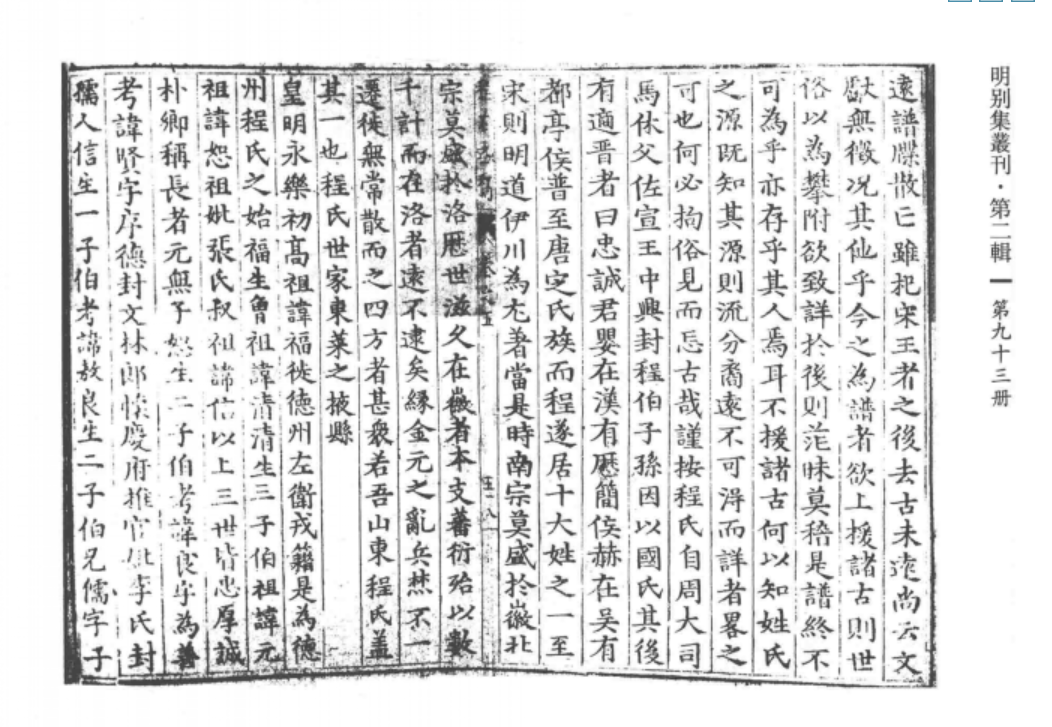 明别集叢刊·第二輯 第九十三册
遠譜牒散亡雖杞宋王者之後去古未遠尚云文
獻無徵况其他乎今之為譜者欲上援諸古則世
俗以為攀附欲致詳於後則茫昧莫稽是譜終不
可為乎亦存乎其人焉耳不援諸古何以知姓氏
之源既知其源則流分裔遠不可得而詳者畧之
可也何必拘俗見而忘古哉謹按程氏自周大司
馬休父佐宣王中興封程伯子孫因以國氏其後
有適晋者曰忠誠君嬰在漢有歷簡侯赫在吴有
都亭侯普至唐定氏族而程遂居十大姓之一至
宋則明道伊川為尤著當是時南宗莫盛於徽北
宗莫盛於洛歷世滋久在徽者本支蕃衍殆以數
千計而在洛者遠不逮矣緣金元之亂兵焚不一
遷徙無常散而之四方者甚衆若吾山東程氏盖
其一也程氏世家東萊之掖縣
皇明永樂初高祖諱福徙德州左衛戎籍是為德
州程氏之始福生曾祖諱清清生三子伯祖諱元
祖諱恕祖妣張氏叔祖諱信以上三世皆忠厚誠
朴鄉稱長者元無子恕生二子伯考諱良字為善
考諱賢字序德封文林郎懷慶府推官妣李氏封
孺人信生一子伯考諱放良生二子伯兄儒字子